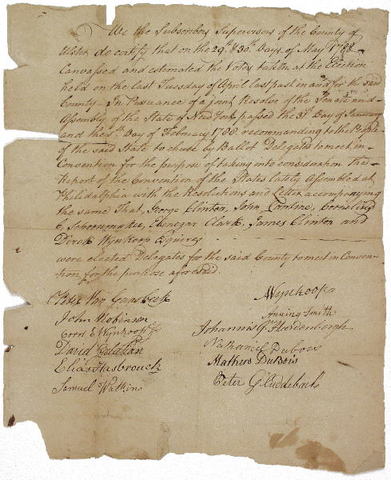 We the Subscribers Supervisors of the County of
Ulster do certify that on the 29th & 30th Days of May 1788
Canvassed and estimated the Votes taken at the Election
held on the last Tuesday of April last past in and for the said
County. In Pursuance of a joint Resolve of the Senate and
Assembly of the State of New York passed the 31st Day of January
and the 1st Day of February 1788 recommending to the People
of the said State to chuse by Ballot Delegates to meet in
Convention for the purpose of taking into consideration the
Report of the Convention of the States lately Assembled at
Philadelphia with the Resolutions and Letter accompanying
the same That, George Clinton, John Cantine, Cornelius
C Schoonmaker, Ebenezer Clark, James Clinton and
Dirck Wynkoop Esquires
were elected Delegates for the said County to meet in Conven
tion for the purpose aforesaid
Van Gaasbeek
Wynkoop
John Robinson
Anning Smith
Corn E Wynkoop
Johannis G Hardenbergh
David Galatian
Nathaniel Dubois
Elias Hasbrouck
Mathew DuBois
Samuel Watkins
Peter Cuddeback